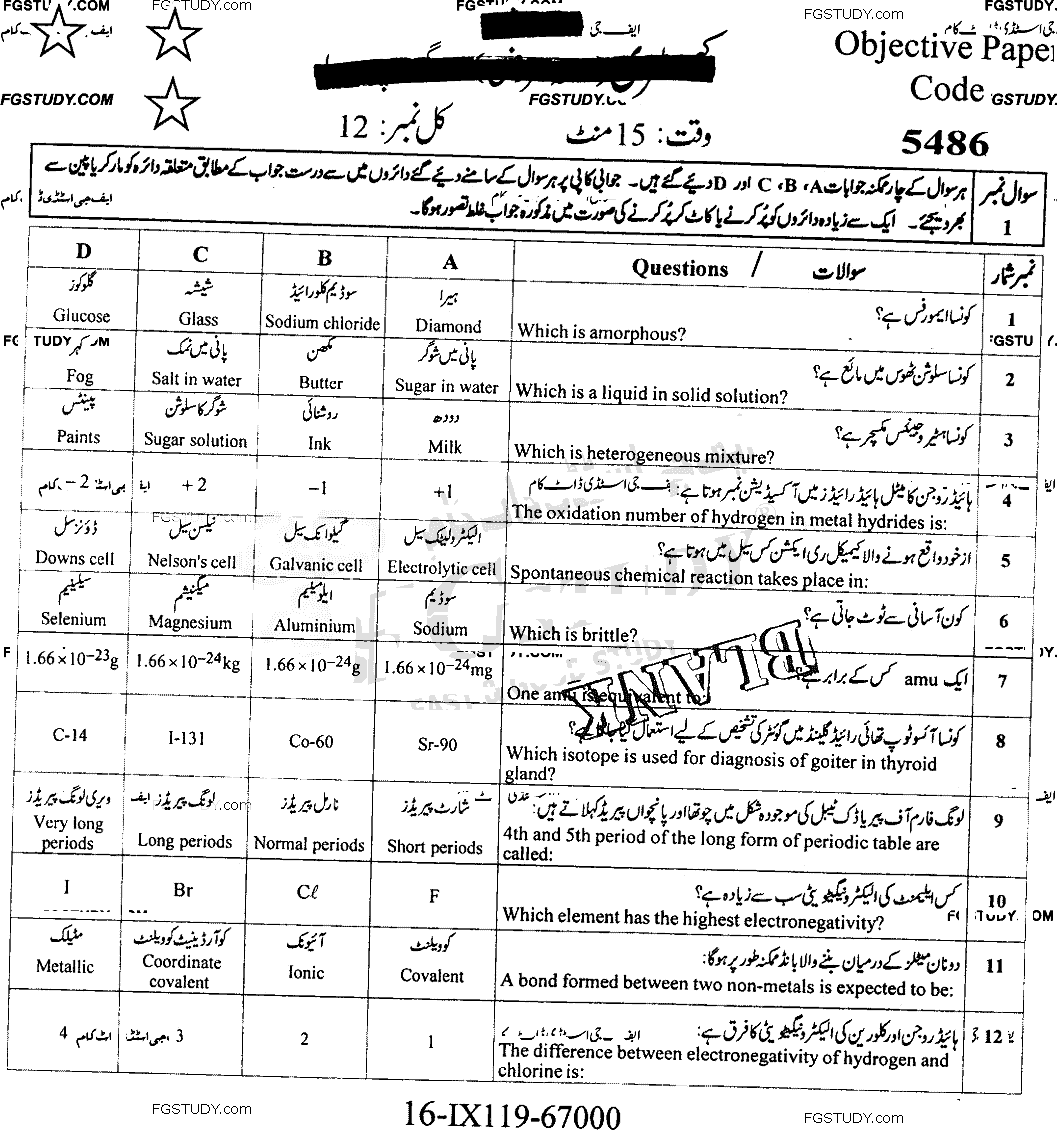 FGSTUDY.COM
FGSTUDY.com
FGSTUDY.
ایف جی
Objective Paper
Code
FGSTUDY.COM
GSTUDY.
5486
وقت: 15 منٹ
کل نمبر: 12
سوال نمبر 1
ہر سوال کے چار ممکنہ جوابات A، B، C اور D دیئے گئے ہیں۔ جوابی کاپی پر ہر سوال کے سامنے دیئے گئے دائروں میں سے درست جواب کے مطابق متعلقہ دائرہ کو مارکر یا پین سے
بھر دیجئے۔ ایک سے زیادہ دائروں کو پُر کرنے یا کاٹ کر پُر کرنے کی صورت میں مذکورہ جواب غلط تصور ہوگا۔
D C B A Questions / سوالات نمبر شمار
گلوکوز شیشہ سوڈیم کلورائیڈ ہیرا کونسا ایمورفس ہے؟ 1
Glucose Glass Sodium chloride Diamond Which is amorphous?
کہر پانی میں نمک مکھن پانی میں شوگر کونسا سلوشن ٹھوس میں مائع ہے؟ 2
Fog Salt in water Butter Sugar in water Which is a liquid in solid solution?
پینٹس شوگر کا سلوشن روشنائی دودھ کونسا ہیٹروجینئس مکسچر ہے؟ 3
Paints Sugar solution Ink Milk Which is heterogeneous mixture?
ہائیڈروجن کا میٹل ہائیڈرائیڈز میں آکسیڈیشن نمبر ہوتا ہے: 4
−2 +2 −1 +1 The oxidation number of hydrogen in metal hydrides is:
ڈاؤنز سیل نیلسن سیل گیلوانک سیل الیکٹرولیٹک سیل ازخود واقع ہونے والا کیمیکل ری ایکشن کس سیل میں ہوتا ہے؟ 5
Downs cell Nelson's cell Galvanic cell Electrolytic cell Spontaneous chemical reaction takes place in:
سیلینیم میگنیشیم ایلومینیم سوڈیم کون آسانی سے ٹوٹ جاتی ہے؟ 6
Selenium Magnesium Aluminium Sodium Which is brittle?
1.66×10−23g 1.66×10−24kg 1.66×10−24g 1.66×10−24mg ایک amu کس کے برابر ہے؟ 7
One amu is equivalent to:
BLANK
کونسا آئسوٹوپ تھائی رائیڈ گلینڈ میں گوئٹر کی تشخیص کے لیے استعمال کیا جاتا ہے؟ 8
C-14 I-131 Co-60 Sr-90 Which isotope is used for diagnosis of goiter in thyroid
gland?
ویری لونگ پیریڈز لونگ پیریڈز نارمل پیریڈز شارٹ پیریڈز لونگ فارم آف پیریاڈک ٹیبل کی موجودہ شکل میں چوتھا اور پانچواں پیریڈ کہلاتے ہیں: 9
Very long periods Long periods Normal periods Short periods 4th and 5th period of the long form of periodic table are
called:
I Br Cℓ F کس ایلیمنٹ کی الیکٹرونیگٹیویٹی سب سے زیادہ ہے؟ 10
Which element has the highest electronegativity?
میٹلک کوآرڈینیٹ کوویلنٹ آئیونک کوویلنٹ دو نان میٹلز کے درمیان بننے والا بانڈ ممکنہ طور پر ہوگا: 11
Metallic Coordinate covalent Ionic Covalent A bond formed between two non-metals is expected to be:
ہائیڈروجن اور کلورین کی الیکٹرونیگٹیویٹی کا فرق ہے: 12
4 3 2 1 The difference between electronegativity of hydrogen and
chlorine is:
FGSTUDY.com
16-IX119-67000
FGSTUDY.com